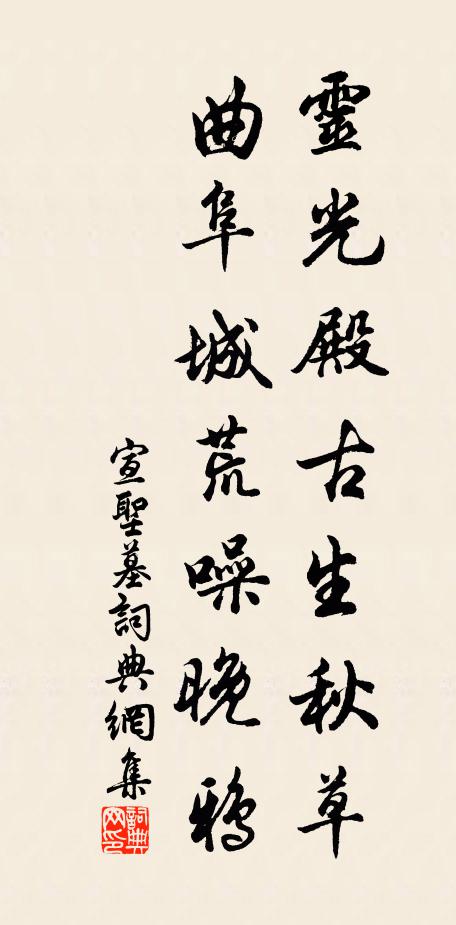 靈光殿古生秋草
曲阜城荒噪晚鴉
宣聖墓詞典網集
詞典網印